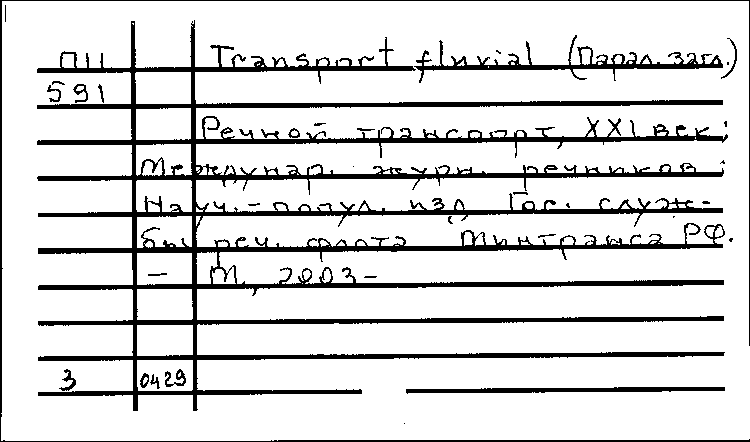 П11 Transport fluvial (Парал. загл.)
591
Речной транспорт, XXI век :
Междунар. журн. речников :
Науч.-попул. изд. Гос. служ-
бы реч. флота Минтранса РФ.
— М., 2003-
3 0429